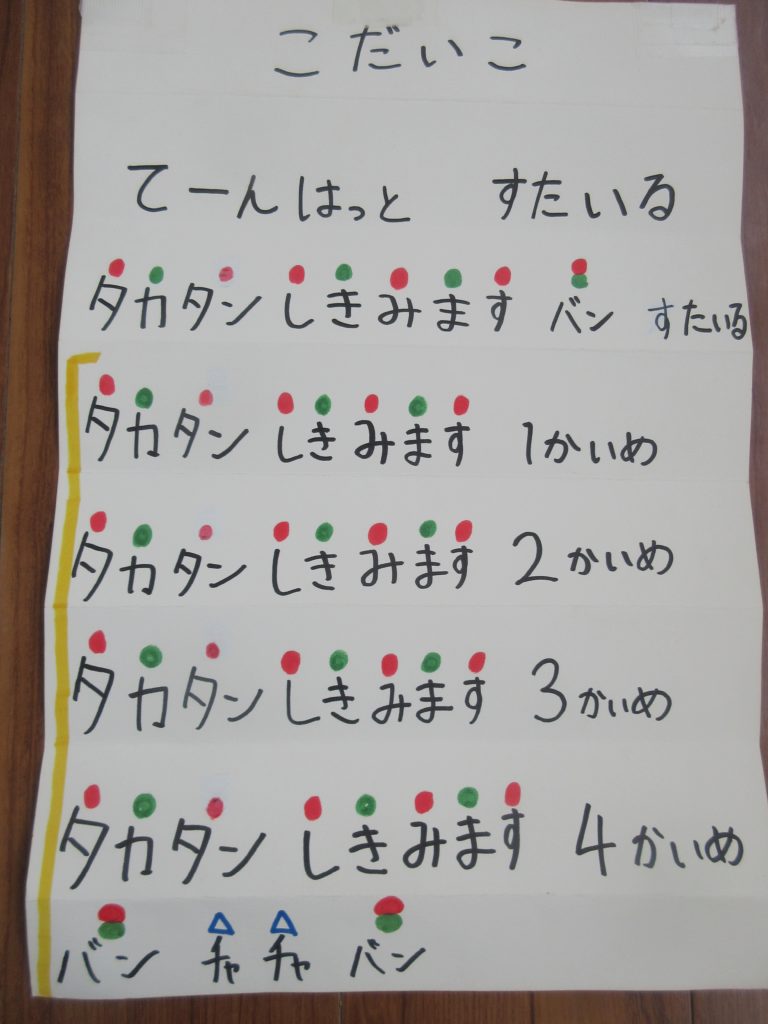 こだいこ
てーんはっと すたいる
タカタン しきみます バン すたいる
タカタン しきみます 1かいめ
タカタン しきみます 2かいめ
タカタン しきみます 3かいめ
タカタン しきみます 4かいめ
バン チャ チャ バン